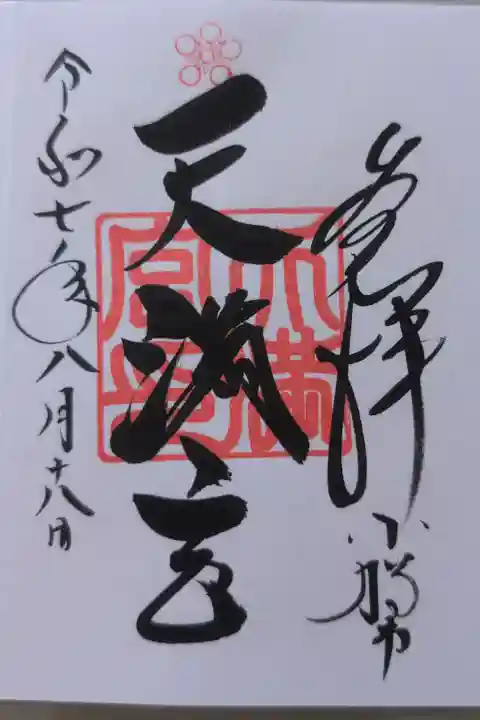 奉拝 小樽市
天満宮
天満
宮印
令和七年八月十八日